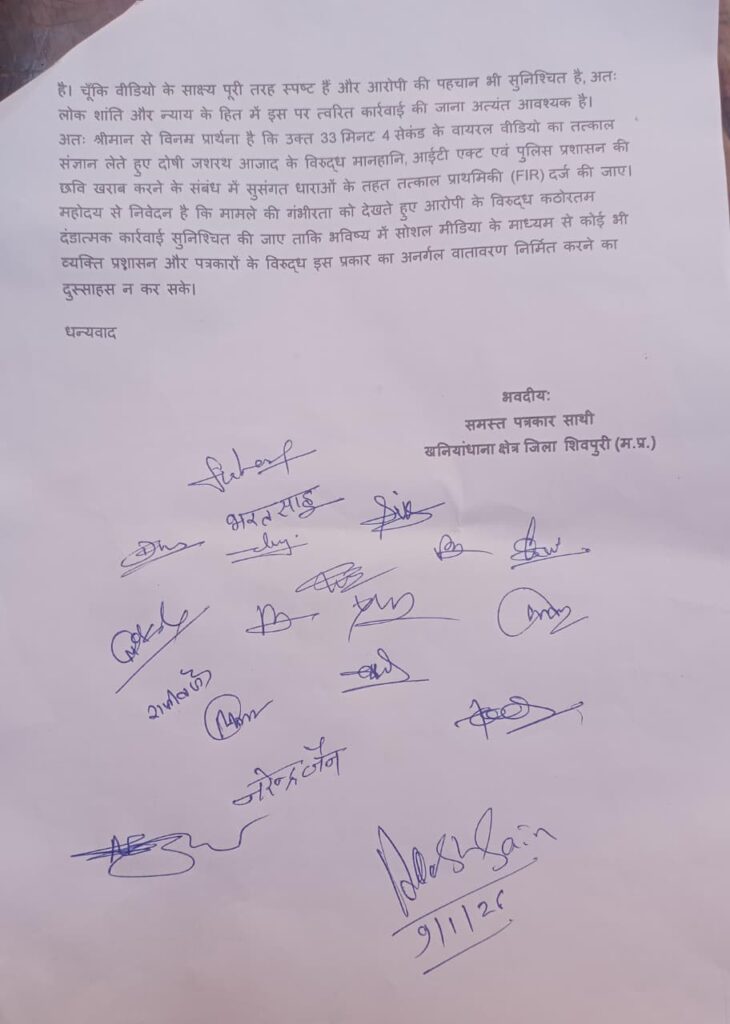 है। चूँकि वीडियो के साक्ष्य पूरी तरह स्पष्ट हैं और आरोपी की पहचान भी सुनिश्चित है, अतः
लोक शांति और न्याय के हित में इस पर त्वरित कार्रवाई की जाना अत्यंत आवश्यक है।
अतः श्रीमान से विनम्र प्रार्थना है कि उक्त 33 मिनट 4 सेकंड के वायरल वीडियो का तत्काल
संज्ञान लेते हुए दोषी जशरथ आजाद के विरुद्ध मानहानि, आईटी एक्ट एवं पुलिस प्रशासन की
छवि खराब करने के संबंध में सुसंगत धाराओं के तहत तत्काल प्राथमिकी (FIR) दर्ज की जाए।
महोदय से निवेदन है कि मामले की गंभीरता को देखते हुए आरोपी के विरुद्ध कठोरतम
दंडात्मक कार्रवाई सुनिश्चित की जाए ताकि भविष्य में सोशल मीडिया के माध्यम से कोई भी
व्यक्ति प्रशासन और पत्रकारों के विरुद्ध इस प्रकार का अनर्गल वातावरण निर्मित करने का
दुस्साहस न कर सके।
धन्यवाद
भवदीय:
समस्त पत्रकार साथी
खनियांधाना क्षेत्र जिला शिवपुरी (म.प्र.)
भरत साहू
नरेन्द्र जैन
9/1/26